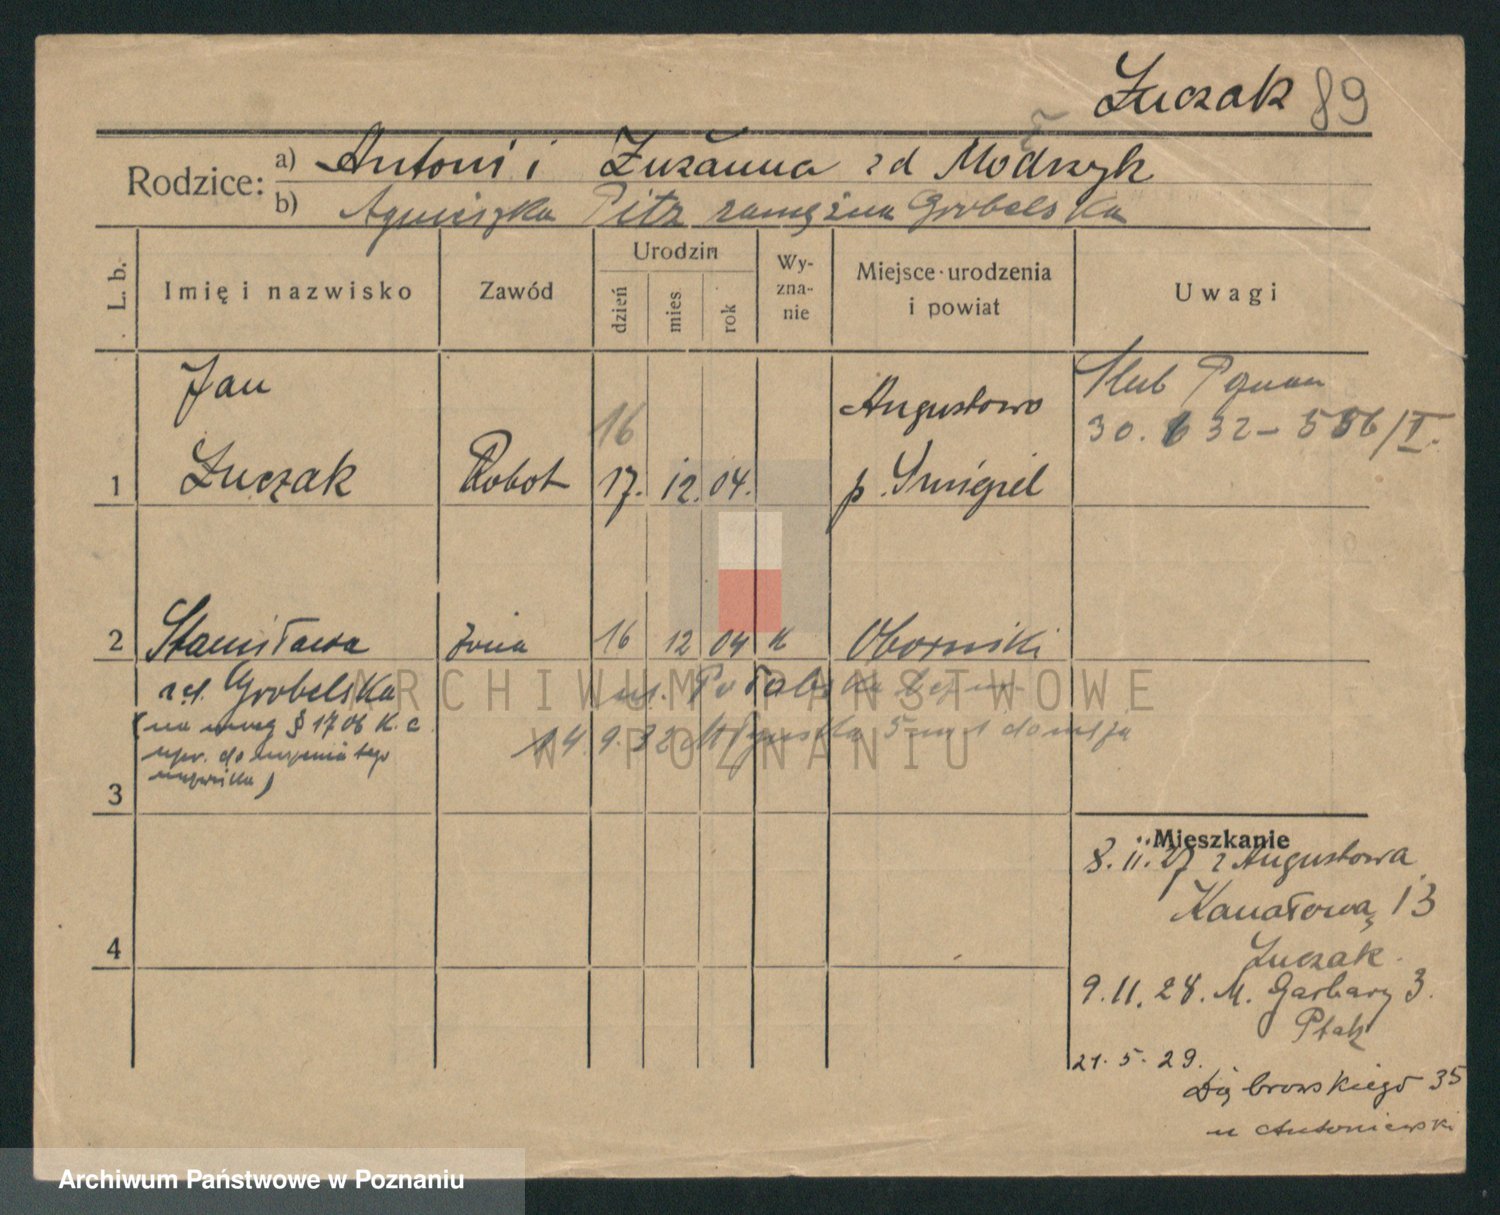 Żuczak 89
Rodzice: a) Antoni i Zuzanna zd Modrzyk
b) Agnieszka Pitz zamężna Grobelska
L. b. Imię i nazwisko Zawód Urodzin Wy-zna-nie Miejsce urodzenia i powiat Uwagi
dzień mies rok
Jan Augustowo Ślub Poznań
16 30. 6 32 - 556/I.
1 Żuczak Robot 17. 12. 04. p. Śmigiel
2 Stanisława żona 16 12 04 k Oborniki
zd. Grobelska
(na § 1706 K. c
upr. do tego
nazwiska)
14. 9. 32
3
Mieszkanie
8. 11. 27 z Augustowa
Kanałowa 13
Żuczak
4
9. 11. 28. M. Garbary 3.
Ptak
21. 5. 29.
Dąbrowskiego 35
u Antoniewski
ARCHIWUM PAŃSTWOWE
W POZNANIU
Archiwum Państwowe w Poznaniu